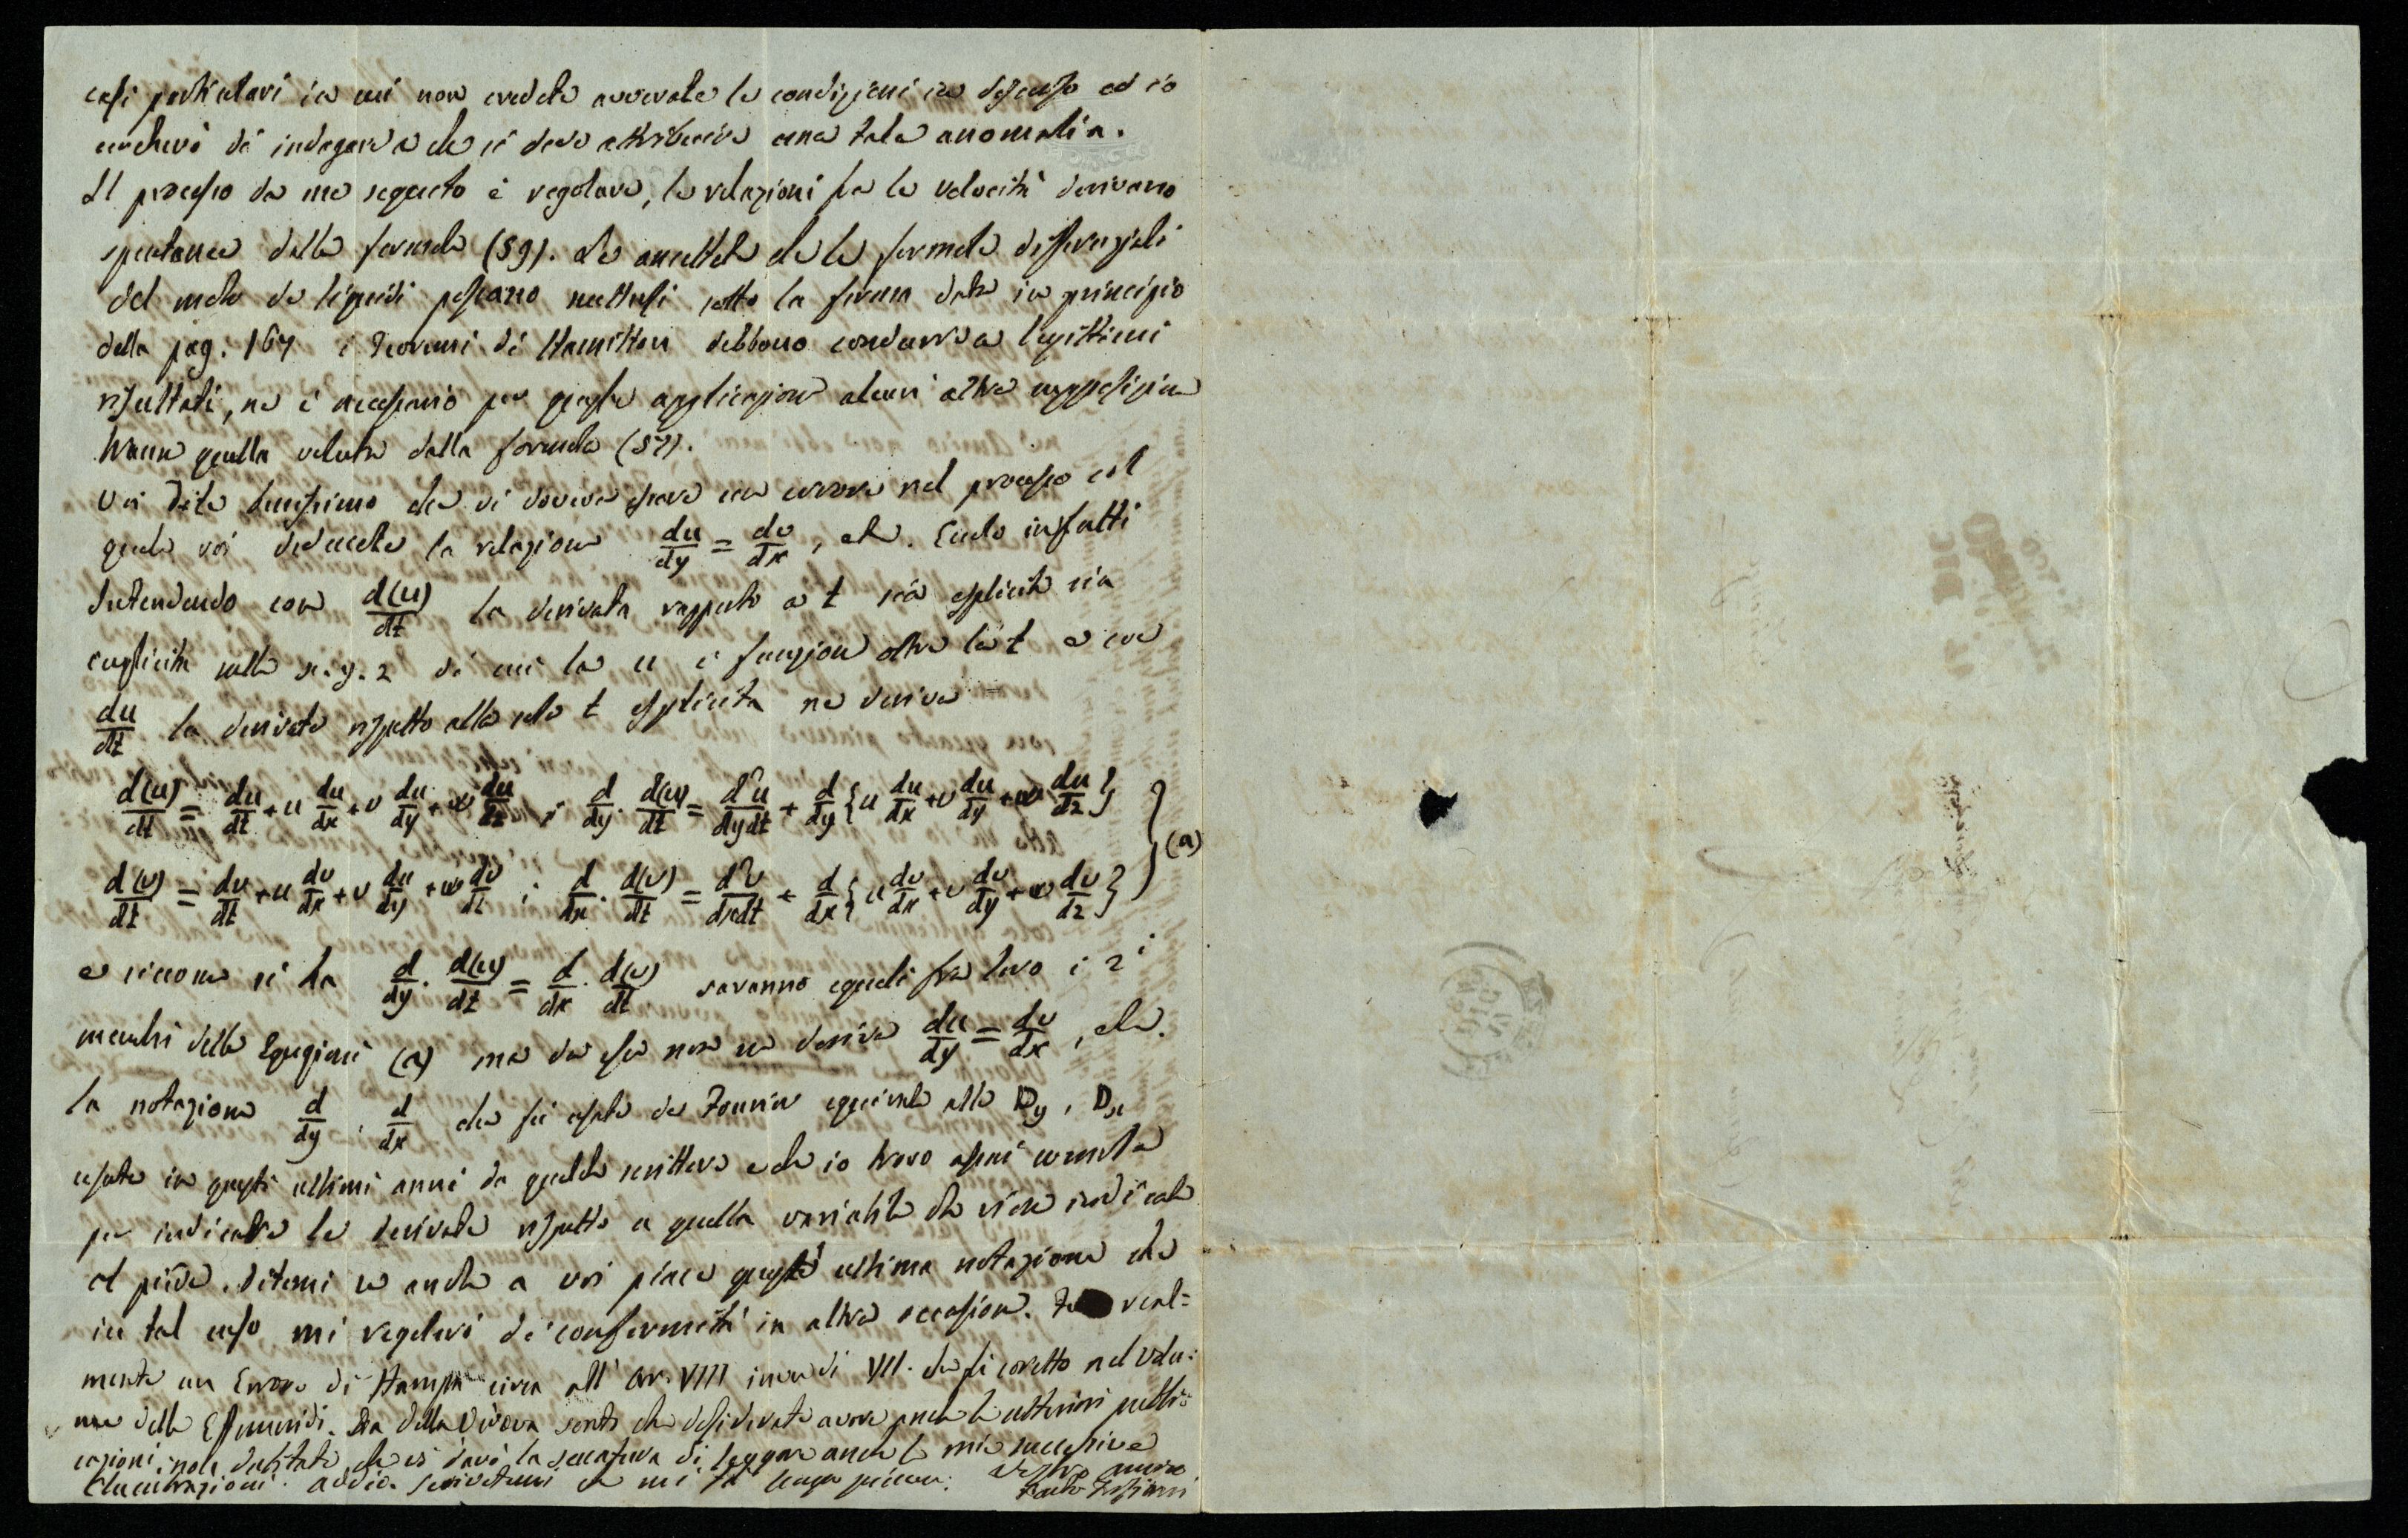 casi particolari in cui non credete avverate le condizioni in discorso ed io
cercherò di indagare a che si deve attribuire una tale anomalia.
Il processo da me seguito è regolare, le relazioni fra le velocità derivano
spontanee dalle formole (59). Se ammettete che le formole differenziali
del moto de' liquidi possano mettersi sotto la forma data in principio
della pag. 167 i Teoremi di Hamilton debbono condurre a legittimi
risultati, ne è necessario per queste applicazioni alcun' altra supposizione
tranne quella voluta dalla formola (57).
Voi dite benissimo che vi doveva essere un errore nel processo col
quale voi deducete la relazione du/dy = dv/dx, etc. infatti
Intendendo con d(u)/dt la derivata rapporto a t sia esplicita sia
implicita nelle x. y. z di cui la u è funzione oltre la t e con
du/dt la derivata rispetto alla sola t esplicita ne deriva
d(u)/dt = du/dt + u du/dx + v du/dy + w du/dz ; d/dy . d(u)/dt = d²u/dydt + d/dy {u du/dx + v du/dy + w du/dz}
d(v)/dt = dv/dt + u dv/dx + v du/dy + w dv/dz ; d/dx . d(v)/dt = d²v/dxdt + d/dx {u dv/dx + v dv/dy + w dv/dz} (a)
e siccome si ha d/dy . d(u)/dt = d/dx . d(v)/dt saranno eguali fra loro i 2i
membri delle Equazioni (a) ma da essi non ne deriva du/dy = dv/dx, etc.
la notazione d/dy, d/dx che fu usata da Fourier equivale alle Dy, Dx
usate in questi ultimi anni da qualche scrittore e che io trovo assai comode
per indicare le derivate rispetto a quella variabile che viene indicata
al piede. Ditemi se anche a voi piace questa ultima notazione che
in tal caso mi regolerò di conformità in altra occasione. real=
mente un Errore di Stampa circa all' Ar. VIII invece di VII. che fu corretto nel Volu=
me delle Effemeridi. Dalla Vostra sento che desiderate avere anche le ulteriori pubbli=
cazioni, non dubitate che vi darò la seccatura di leggere anche le mie successive
Elucubrazioni. addio. Scrivetemi che mi fa lungo piacere. Vostro amico